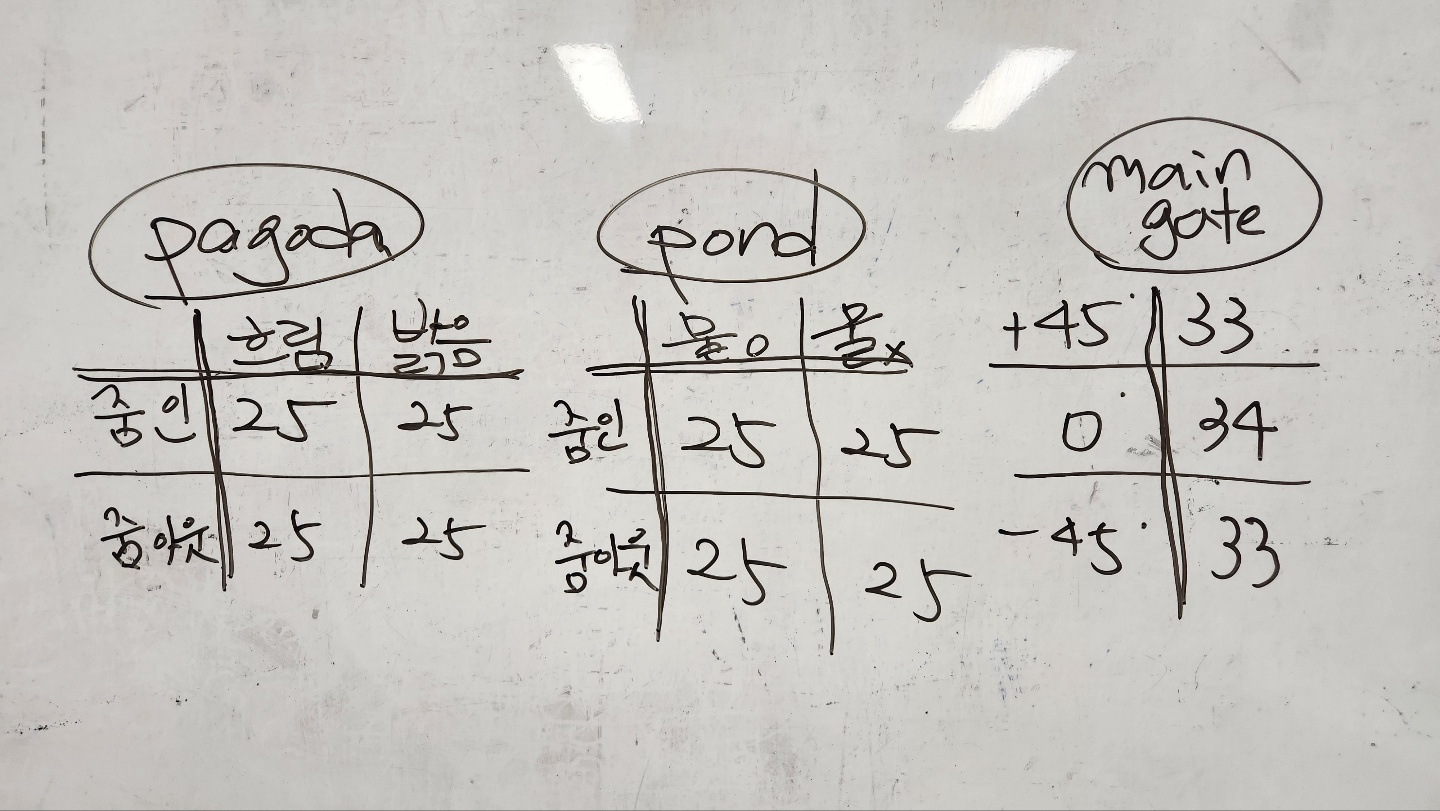 pagoda
흐림 밝음
줌인 25 25
줌아웃 25 25
pond
물o 물x
줌인 25 25
줌아웃 25 25
main
gate
+45° 33
0° 34
-45° 33